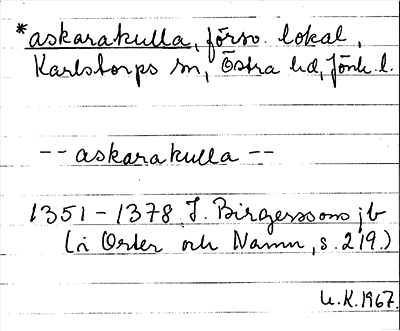 *askarakulla, försv. lokal,
Karlstorps sn, Östra hd, Jönk. l.
-- askarakulla --
1351-1378 J. Birgerssons jb
(i Orter och Namn, s. 219.)
U.K. 1967.